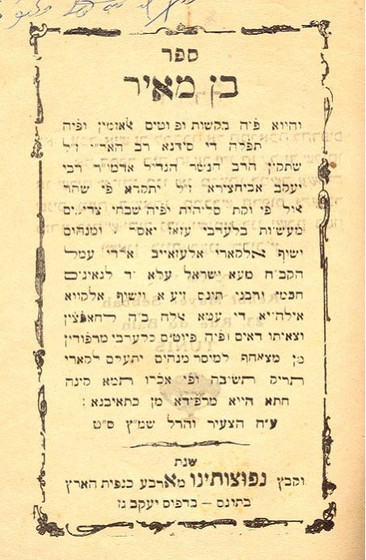 ספר
בן מאיר
והיוא פיה בקשות ופוטים לאזמין ופיה
תפלה די סידנא רב האר״י ז״ל
שתקין הרב הנשר הגדול אדמו״ר רבי
יעקב אביחצירא ז״ל יתקרא פי שהר
אלול פי וקת סליחות ופיה שבחי צדיקים
מעשות בלערבי עזאז יאסר ומנהום
ישוף אלקארי אלעזאייב אלדי עמל
הקב״ה מעא ישראל עלא יד לגאונים
חכמי ורבני תונס זיע״א וישוף אלקויא
אילהיא די עמא אלה ב״ה
וצאיתו דאים ופיה פיוטים בלערבי מרפודין
מן מצאחף למיסר מנהום יתעלם לקארי
תריק תשובה ופי אכרו תמא קינה
חתא היא מרפודא מן כתאיבנא:
ע״ה הצעיר והדל שמ״ץ ס״ט
שנת
וקבץ נפוצותינו מארבע כנפות הארץ
בתונס – בדפוס יעקב גז